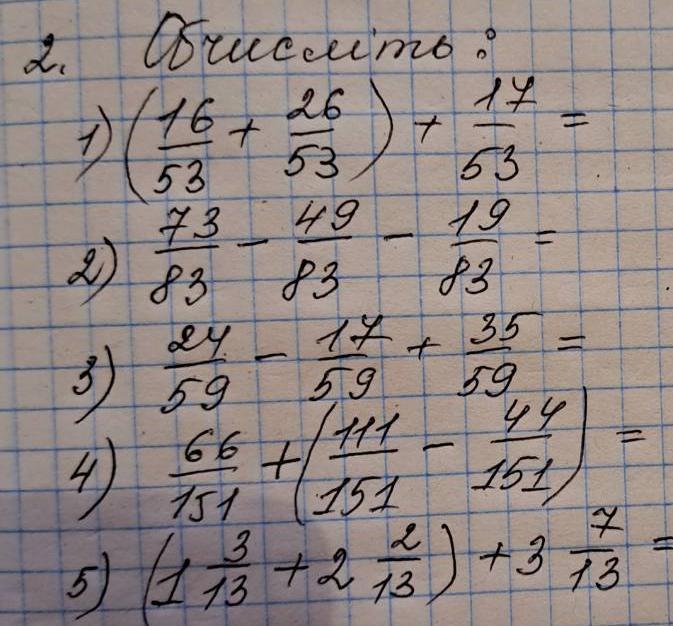 2. Обчисліть:
1) (16/53 + 26/53) + 17/53 =
2) 73/83 - 49/83 - 19/83 =
3) 24/59 - 17/59 + 35/59 =
4) 66/151 + (111/151 - 44/151) =
5) (1 3/13 + 2 2/13) + 3 7/13 =